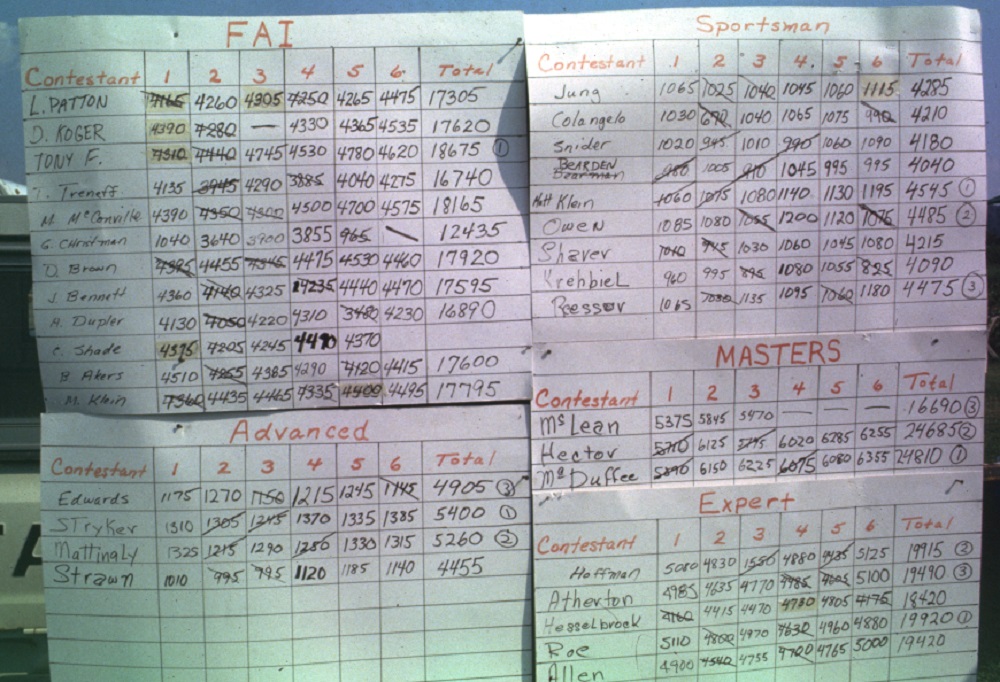 FAI
Contestant 1 2 3 4 5 6 Total
L. PATTON 4165 4260 4305 4250 4265 4475 17305
D. KOGER 4390 4280 — 4330 4365 4535 17620
TONY F. 4510 4440 4745 4530 4780 4620 18675 ①
T. Treneff 4135 3945 4290 3885 4040 4275 16740
M. McConville 4390 4350 4500 4700 4575 18165
G. Christman 1040 3640 3900 3855 965 12435
D. Brown 4455 4475 4530 4460 17920
J. Bennett 4360 4140 4325 4235 4440 4470 17595
A. Dupler 4130 4050 4220 4310 3480 4230 16890
C. Shade 4395 4205 4245 4490 4370
B Akers 4510 4255 4385 4290 4120 4415 17600
M. Klein 4360 4435 4465 4335 4400 4495 17795
Advanced
Contestant 1 2 3 4 5 6 Total
Edwards 1175 1270 1150 1215 1245 1145 4905 ③
STryker 1310 1305 1245 1370 1335 1385 5400 ①
Mattingly 1325 1215 1290 1250 1330 1315 5260 ②
Strawn 1010 995 995 1120 1185 1140 4455
Sportsman
Contestant 1 2 3 4. 5 6 Total
Jung 1065 1025 1040 1045 1060 1115 4285
Colangelo 1030 1040 1065 1075 990 4210
Snider 1020 945 1010 990 1060 1090 4180
BEARDEN
1005 910 1045 995 995 4040
Matt Klein 1060 1075 1080 1140 1130 1195 4545 ①
Owen 1085 1080 1055 1200 1120 1075 4485 ②
Shaver 1040 945 1030 1060 1045 1080 4215
Krehbiel 960 995 895 1080 1055 825 4090
Ressor 1065 1030 1135 1095 1060 1180 4475 ③
MASTERS
Contestant 1 2 3 4 5 6 Total
McLean 5375 5845 5470 — — — 16690 ③
Hector 6125 6020 6285 6255 24685 ②
McDuffee 5890 6150 6225 6075 6080 6355 24810 ①
Expert
Contestant 1 2 3 4 5 6 Total
Hoffman 5080 4830 1550 4880 4435 5125 19915 ②
Atherton 4985 4635 4770 4985 5100 19490 ③
Hesselbrock 4160 4415 4470 4730 4805 4175 18420
Roe 5110 4800 4970 4630 4960 4880 19920 ①
Allen 4900 4540 4755 4700 4765 5000 19420